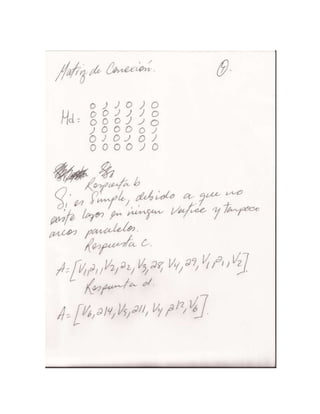 Matriz de Conexión. ①.
Md=
Respuesta b
Si es Simple, debido a que no
existe lazos en ningun vertice y tampoco
arcos paralelos.
Respuesta c.
A=[V1,a1,V2,a2,V3,a8,V4,a9,V1,a1,V2]
Respuesta d.
A=[V6,a14,V5,a11,V4,a12,V6].